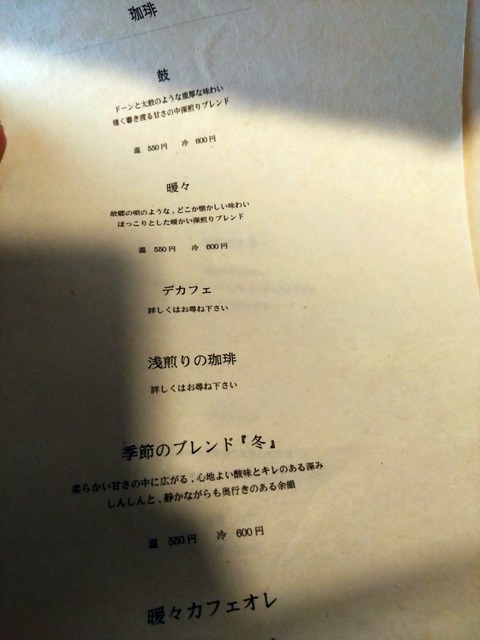 珈琲
鼓
ドーンと太鼓のような重厚な味わい
遠く響き渡る甘さの中深煎りブレンド
温 550円 冷 600円
暖々
故郷の唄のような、どこか懐かしい味わい
ほっこりとした暖かい深煎りブレンド
温 550円 冷 600円
デカフェ
詳しくはお尋ね下さい
浅煎りの珈琲
詳しくはお尋ね下さい
季節のブレンド『冬』
柔らかい甘さの中に広がる、心地よい酸味とキレのある深み
しんしんと、静かながらも奥行きのある余韻
温 550円 冷 600円
暖々カフェオレ